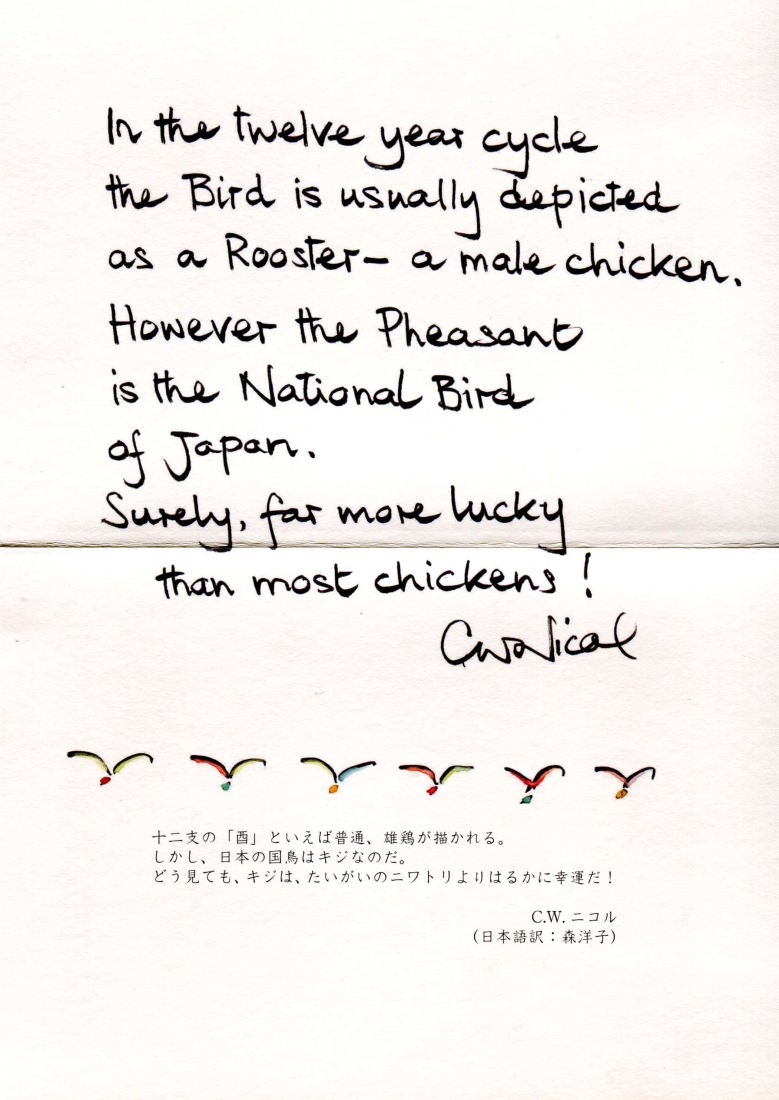 In the twelve year cycle
the Bird is usually depicted
as a Rooster – a male chicken.
However the Pheasant
is the National Bird
of Japan.
Surely, far more lucky
than most chickens!
CW Nicol
十二支の「酉」といえば普通、雄鶏が描かれる。
しかし、日本の国鳥はキジなのだ。
どう見ても、キジは、たいがいのニワトリよりはるかに幸運だ！
C.W. ニコル
(日本語訳：森洋子)